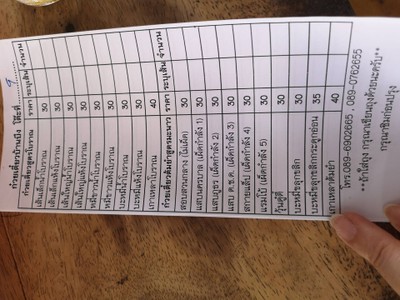 ก๋วยเตี๋ยวบ้านบึง โต๊ะที่............9............
ก๋วยเตี๋ยวสูตรโบราณ ราคา ระบุเส้น จำนวน
เส้นเล็กน้ำโบราณ 30
เส้นเล็กแห้งโบราณ 30
เส้นใหญ่น้ำโบราณ 30
เส้นใหญ่แห้งโบราณ 30
หมี่ขาวน้ำโบราณ 30
หมี่ขาวแห้งโบราณ 30
บะหมี่น้ำโบราณ 30
บะหมี่แห้งโบราณ 30
เกาเหลาโบราณ 40
ก๋วยเตี๋ยวต้มยำสูตรมะนาว ราคา ระบุเส้น จำนวน
สยบสวนกลาง (ไม่เผ็ด) 30
แสบนครบาล (เผ็ดกำลัง 1) 30
แสบภูธร (เผ็ดกำลัง 2) 30
แสบ ต.ช.ด. (เผ็ดกำลัง 3) 30
สกายแล็ป (เผ็ดกำลัง 4) 30
แรมโบ้ (เผ็ดกำลัง 5) 30
วุ้นคู่ดี่ 30
บะหมี่ขลุกขลิก 30
บะหมี่ขลุกขลิกกะดูกอ่อน 35
เกาเหลาต้มยำ 40
โทร.089-6902665 , 089-0762655
**ถ้าใส่ถุง กรุณาเขียนถุงด้วยนะครับ**
กรุณาชิมก่อนปรุง